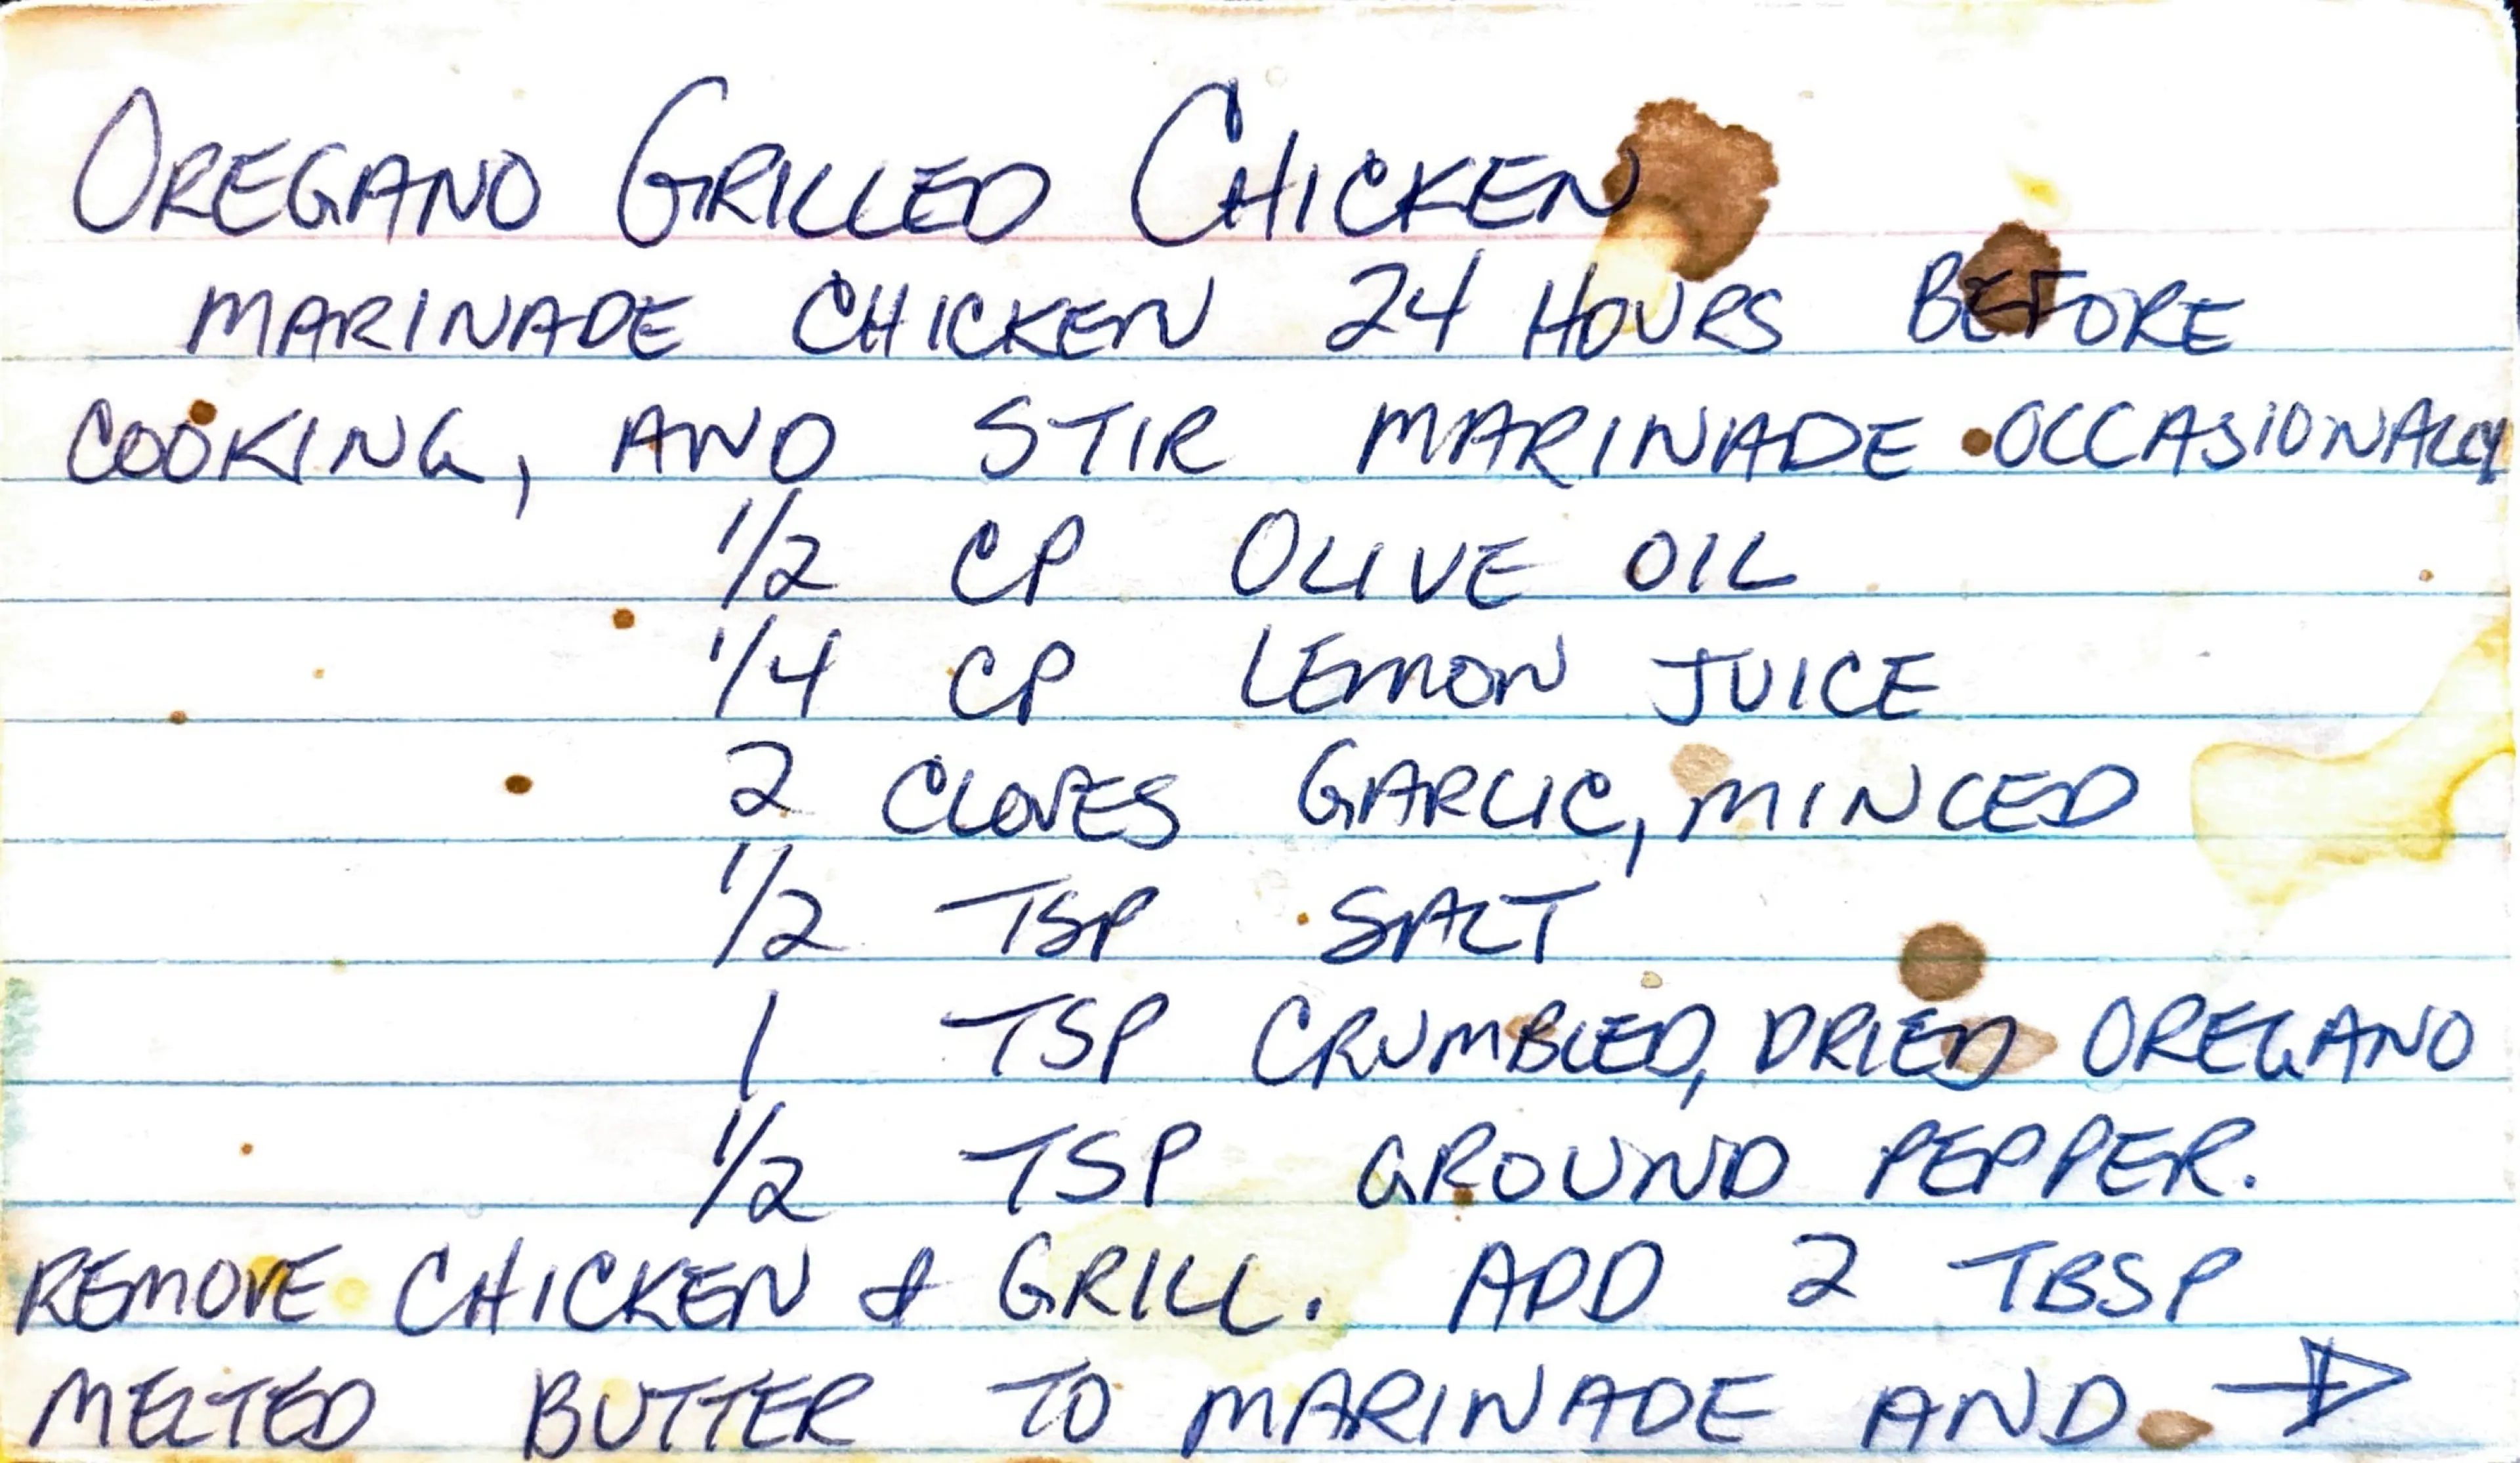 OREGANO GRILLED CHICKEN
MARINADE CHICKEN 24 HOURS BEFORE
COOKING, AND STIR MARINADE OCCASIONALLY
1/2 CP OLIVE OIL
1/4 CP LEMON JUICE
2 CLOVES GARLIC, MINCED
1/2 TSP SALT
1 TSP CRUMBLED, DRIED OREGANO
1/2 TSP GROUND PEPPER.
REMOVE CHICKEN & GRILL. ADD 2 TBSP
MELTED BUTTER TO MARINADE AND →